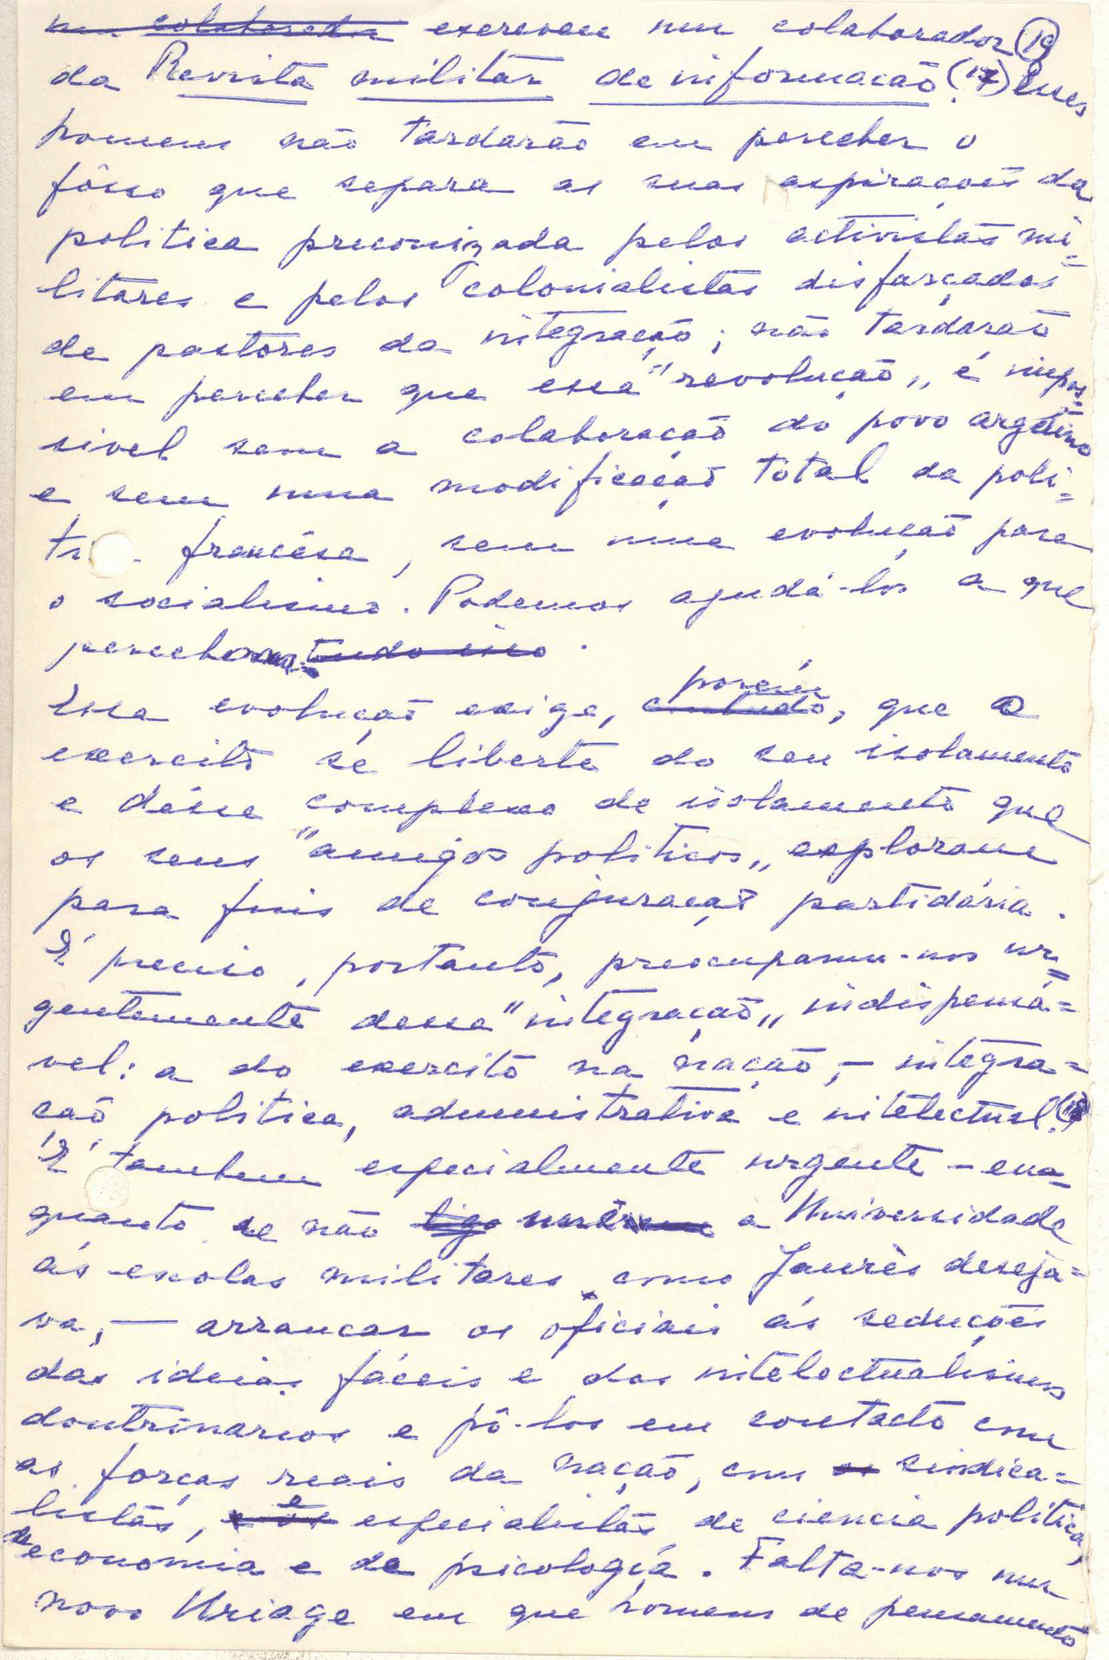 um colaborador escreveu um colaborador (19)
da Revista militar de informação. (17) Esses
homens não tardarão em perceber o
fôsso que separa as suas aspirações da
politica preconizada pelos activistas mi=
litares e pelos colonialistas disfarçados
de pastores da integração; não tardarão
em perceber que essa "revolução" é impos=
sivel sem a colaboração do povo argelino
e sem uma modificação total da poli=
ti francêsa, sem uma evolução para
o socialismo. Podemos ajudá-los a que
percebam tudo isso.
Essa evolução exige, contudo, porém, que o
exercito se liberte do seu isolamento
e dêsse complexo de isolamento que
os seus "amigos politicos" exploram
para fins de conjuração partidária.
É preciso, portanto, preocuparmo-nos ur=
gentemente dessa "integração" indispensá=
vel: a do exercito na nação, - integra=
ção politica, administrativa e intelectual. (18)
É tambem especialmente urgente - ena=
quanto se não liga a Universidade
ás escolas militares como Jaurès deseja=
va, - arrancar os oficiais ás seduções
das ideias fáceis e dos intelectualismos
doutrinarios e pô-los em contacto com
as forças reais da nação, com os sindica=
listas, e os e especialistas de ciencia politica,
de economia e de psicologia. Falta-nos um
novo Uriage em que homens de pensamento